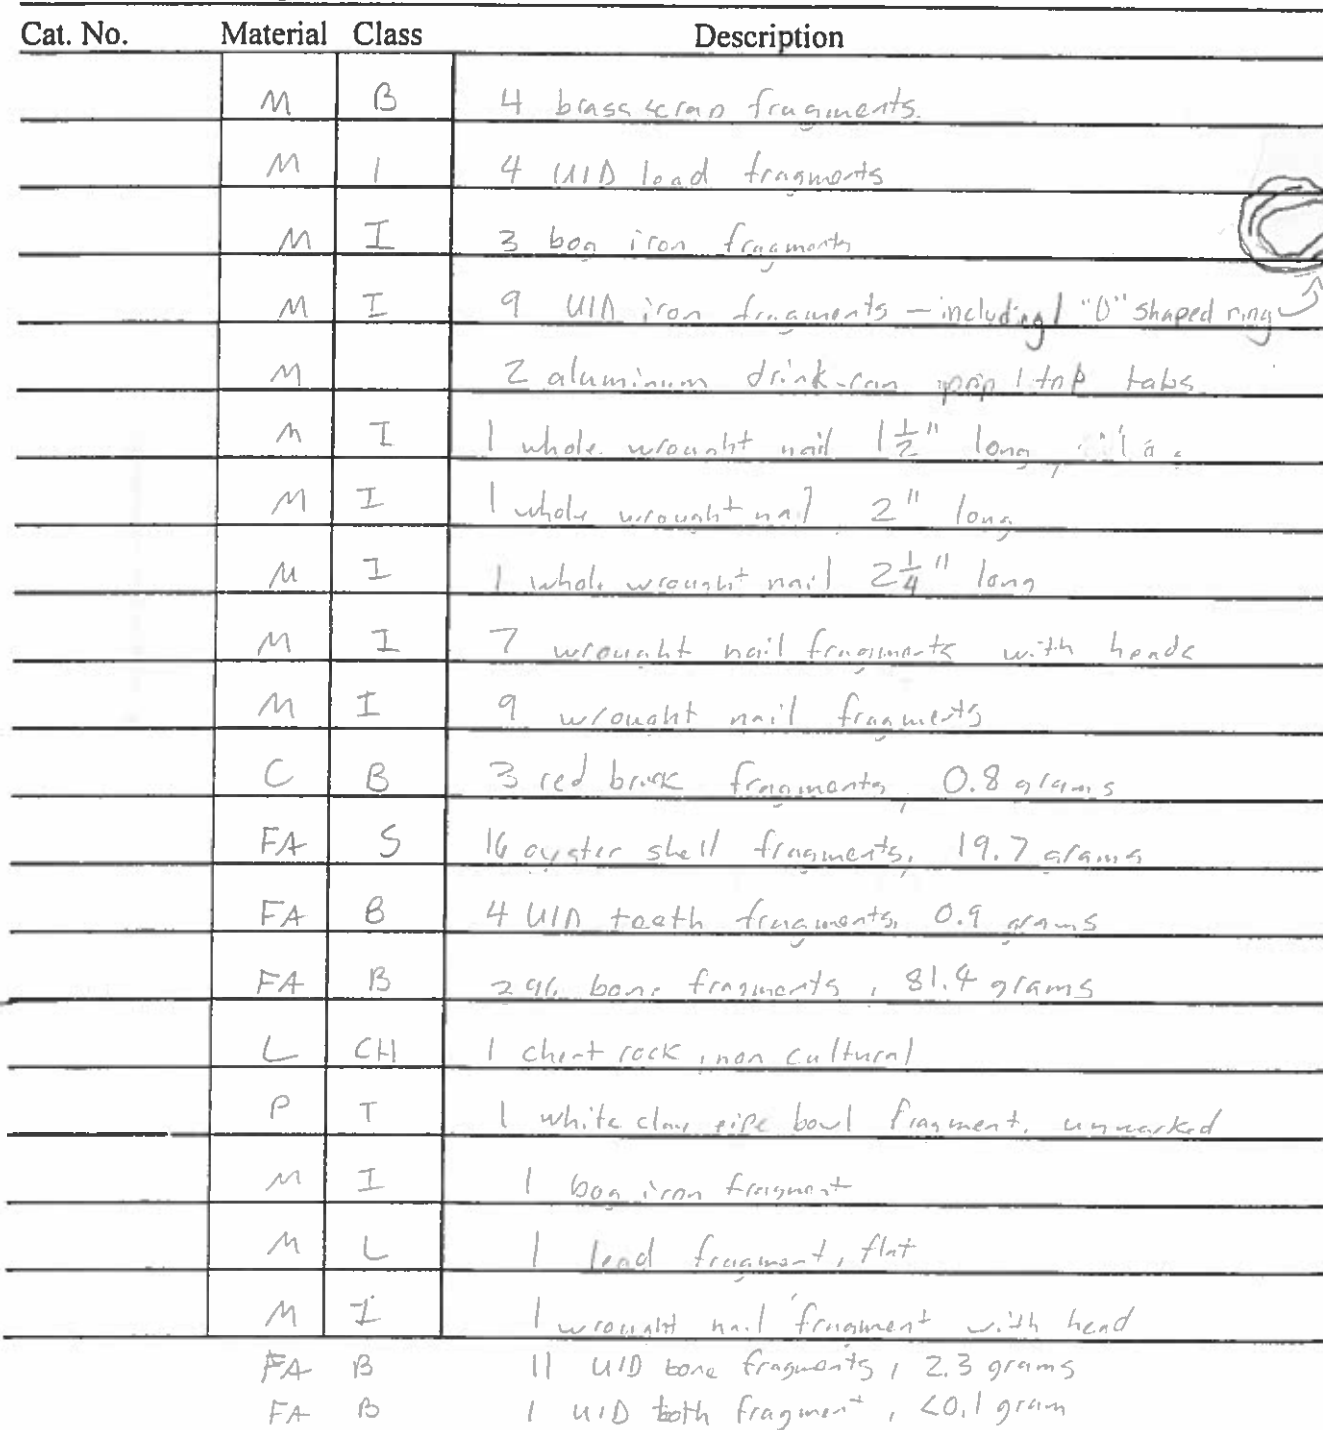 Cat. No. Material Class Description
M B 4 brass scrap fragments.
M l 4 UID lead fragments
M I 3 bog iron fragments
M I 9 UID iron fragments – including 1 "D" shaped ring
M 2 aluminum drink-can tabs
M I 1 whole wrought nail 1 1/2" long,
M I 1 whole wrought nail 2" long
M I 1 whole wrought nail 2 1/4" long
M I 7 wrought nail fragments with heads
M I 9 wrought nail fragments
C B 3 red brick fragments, 0.8 grams
FA S 16 oyster shell fragments, 19.7 grams
FA B 4 UID teeth fragments, 0.9 grams
FA B 296 bone fragments, 81.4 grams
L CH 1 chert rock, non cultural
P T 1 white clay pipe bowl fragment, unmarked
M I 1 bog iron fragment
M L 1 lead fragment, flat
M I 1 wrought nail fragment with head
FA B 11 UID bone fragments, 2.3 grams
FA B 1 UID tooth fragment, <0.1 gram